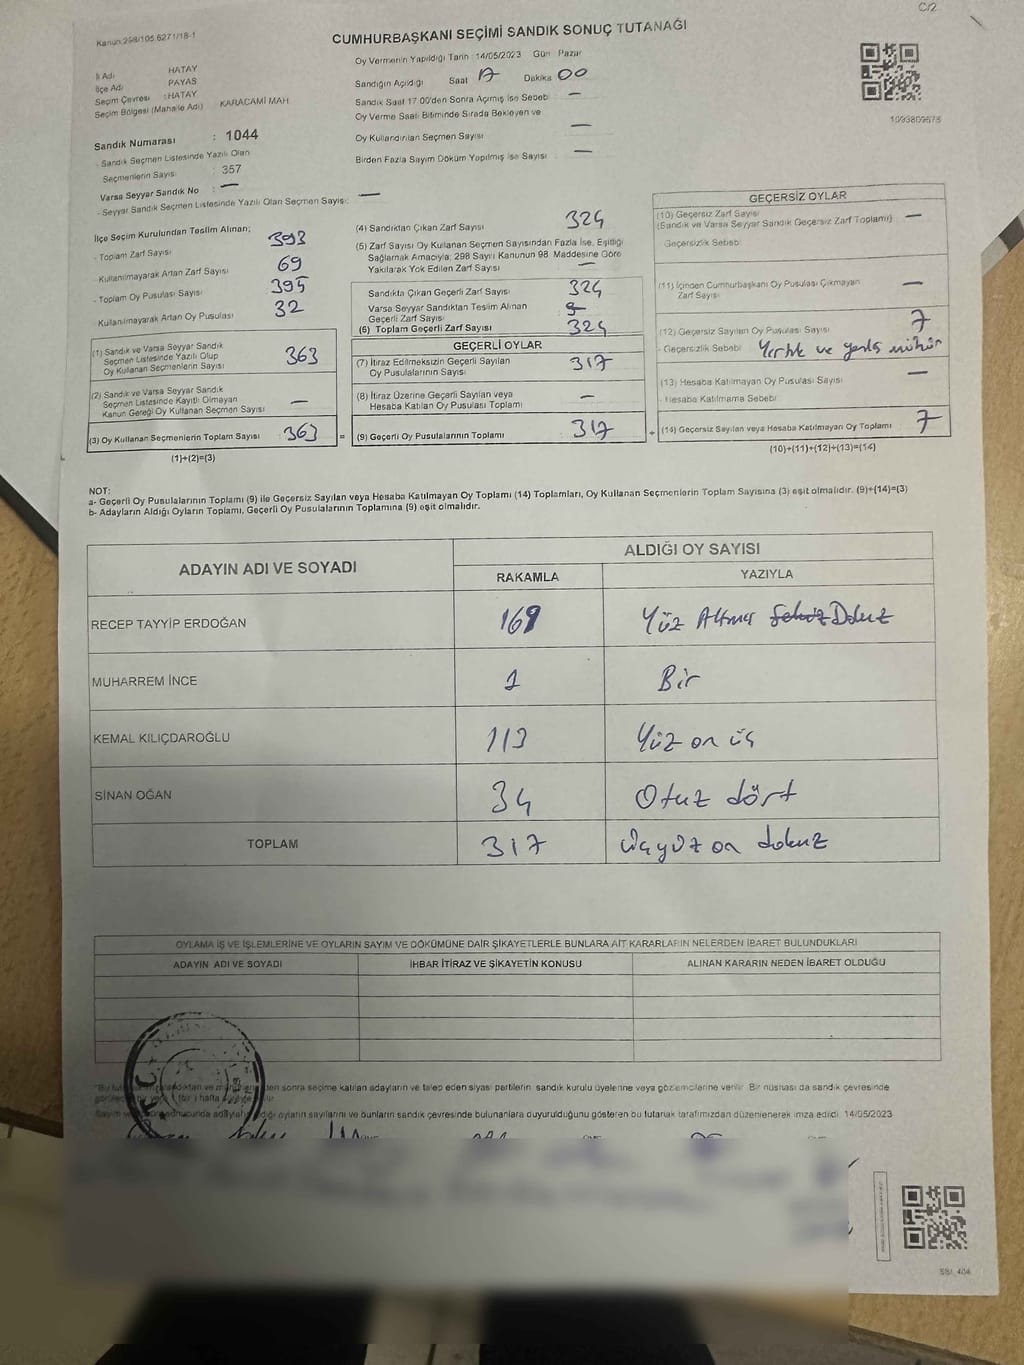 C/2
Kanun:298/105 6271/18-1
CUMHURBAŞKANI SEÇİMİ SANDIK SONUÇ TUTANAĞI
İl Adı HATAY
İlçe Adı PAYAS
Seçim Çevresi :HATAY
Seçim Bölgesi (Mahalle Adı) KARACAMİ MAH.
Oy Vermenin Yapıldığı Tarih :14/05/2023 Gün Pazar
Sandığın Açıldığı Saat 17 Dakika 00
Sandık Saat 17:00'den Sonra Açılmış İse Sebebi —
Oy Verme Saati Bitiminde Sırada Bekleyen ve
Oy Kullandırılan Seçmen Sayısı —
Birden Fazla Sayım Döküm Yapılmış İse Sayısı —
1093809678
Sandık Numarası : 1044
- Sandık Seçmen Listesinde Yazılı Olan
Seçmenlerin Sayısı : 357
Varsa Seyyar Sandık No : —
- Seyyar Sandık Seçmen Listesinde Yazılı Olan Seçmen Sayısı: —
İlçe Seçim Kurulundan Teslim Alınan;
- Toplam Zarf Sayısı 393
- Kullanılmayarak Artan Zarf Sayısı 69
- Toplam Oy Pusulası Sayısı 395
- Kullanılmayarak Artan Oy Pusulası 32
(1) Sandık ve Varsa Seyyar Sandık
Seçmen Listesinde Yazılı Olup
Oy Kullanan Seçmenlerin Sayısı 363
(2) Sandık ve Varsa Seyyar Sandık
Seçmen Listesinde Kayıtlı Olmayan
Kanun Gereği Oy Kullanan Seçmen Sayısı —
(3) Oy Kullanan Seçmenlerin Toplam Sayısı 363
(1)+(2)=(3)
(4) Sandıktan Çıkan Zarf Sayısı 324
(5) Zarf Sayısı Oy Kullanan Seçmen Sayısından Fazla İse, Eşitliği
Sağlamak Amacıyla; 298 Sayılı Kanunun 98. Maddesine Göre
Yakılarak Yok Edilen Zarf Sayısı —
Sandıkta Çıkan Geçerli Zarf Sayısı 324
Varsa Seyyar Sandıktan Teslim Alınan
Geçerli Zarf Sayısı
(6) Toplam Geçerli Zarf Sayısı 324
GEÇERLİ OYLAR
(7) İtiraz Edilmeksizin Geçerli Sayılan
Oy Pusulalarının Sayısı 317
(8) İtiraz Üzerine Geçerli Sayılan veya
Hesaba Katılan Oy Pusulası Toplamı —
= (9) Geçerli Oy Pusulalarının Toplamı 317
GEÇERSİZ OYLAR
(10) Geçersiz Zarf Sayısı
(Sandık ve Varsa Seyyar Sandık Geçersiz Zarf Toplamı) —
- Geçersizlik Sebebi
(11) İçinden Cumhurbaşkanı Oy Pusulası Çıkmayan
Zarf Sayısı —
(12) Geçersiz Sayılan Oy Pusulası Sayısı 7
- Geçersizlik Sebebi Yırtık ve yanlış mühür
(13) Hesaba Katılmayan Oy Pusulası Sayısı —
- Hesaba Katılmama Sebebi
+ (14) Geçersiz Sayılan veya Hesaba Katılmayan Oy Toplamı 7
(10)+(11)+(12)+(13)=(14)
NOT:
a- Geçerli Oy Pusulalarının Toplamı (9) ile Geçersiz Sayılan veya Hesaba Katılmayan Oy Toplamı (14) Toplamları, Oy Kullanan Seçmenlerin Toplam Sayısına (3) eşit olmalıdır. (9)+(14)=(3)
b- Adayların Aldığı Oyların Toplamı, Geçerli Oy Pusulalarının Toplamına (9) eşit olmalıdır.
ADAYIN ADI VE SOYADI ALDIĞI OY SAYISI
RAKAMLA YAZIYLA
RECEP TAYYİP ERDOĞAN 169 Yüz Altmış Sekiz Dokuz
MUHARREM İNCE 1 Bir
KEMAL KILIÇDAROĞLU 113 Yüz on üç
SİNAN OĞAN 34 Otuz dört
TOPLAM 317 Üçyüz on dokuz
OYLAMA İŞ VE İŞLEMLERİNE VE OYLARIN SAYIM VE DÖKÜMÜNE DAİR ŞİKAYETLERLE BUNLARA AİT KARARLARIN NELERDEN İBARET BULUNDUKLARI
ADAYIN ADI VE SOYADI İHBAR İTİRAZ VE ŞİKAYETİN KONUSU ALINAN KARARIN NEDEN İBARET OLDUĞU
sonra seçime katılan adayların ve talep eden siyasi partilerin sandık kurulu üyelerine veya gözlemcilerine verilir. Bir nüshası da sandık çevresinde
oyların sayılarını ve bunların sandık çevresinde bulunanlara duyurulduğunu gösteren bu tutanak tarafımızdan düzenlenerek imza edildi 14/05/2023
SBI_404